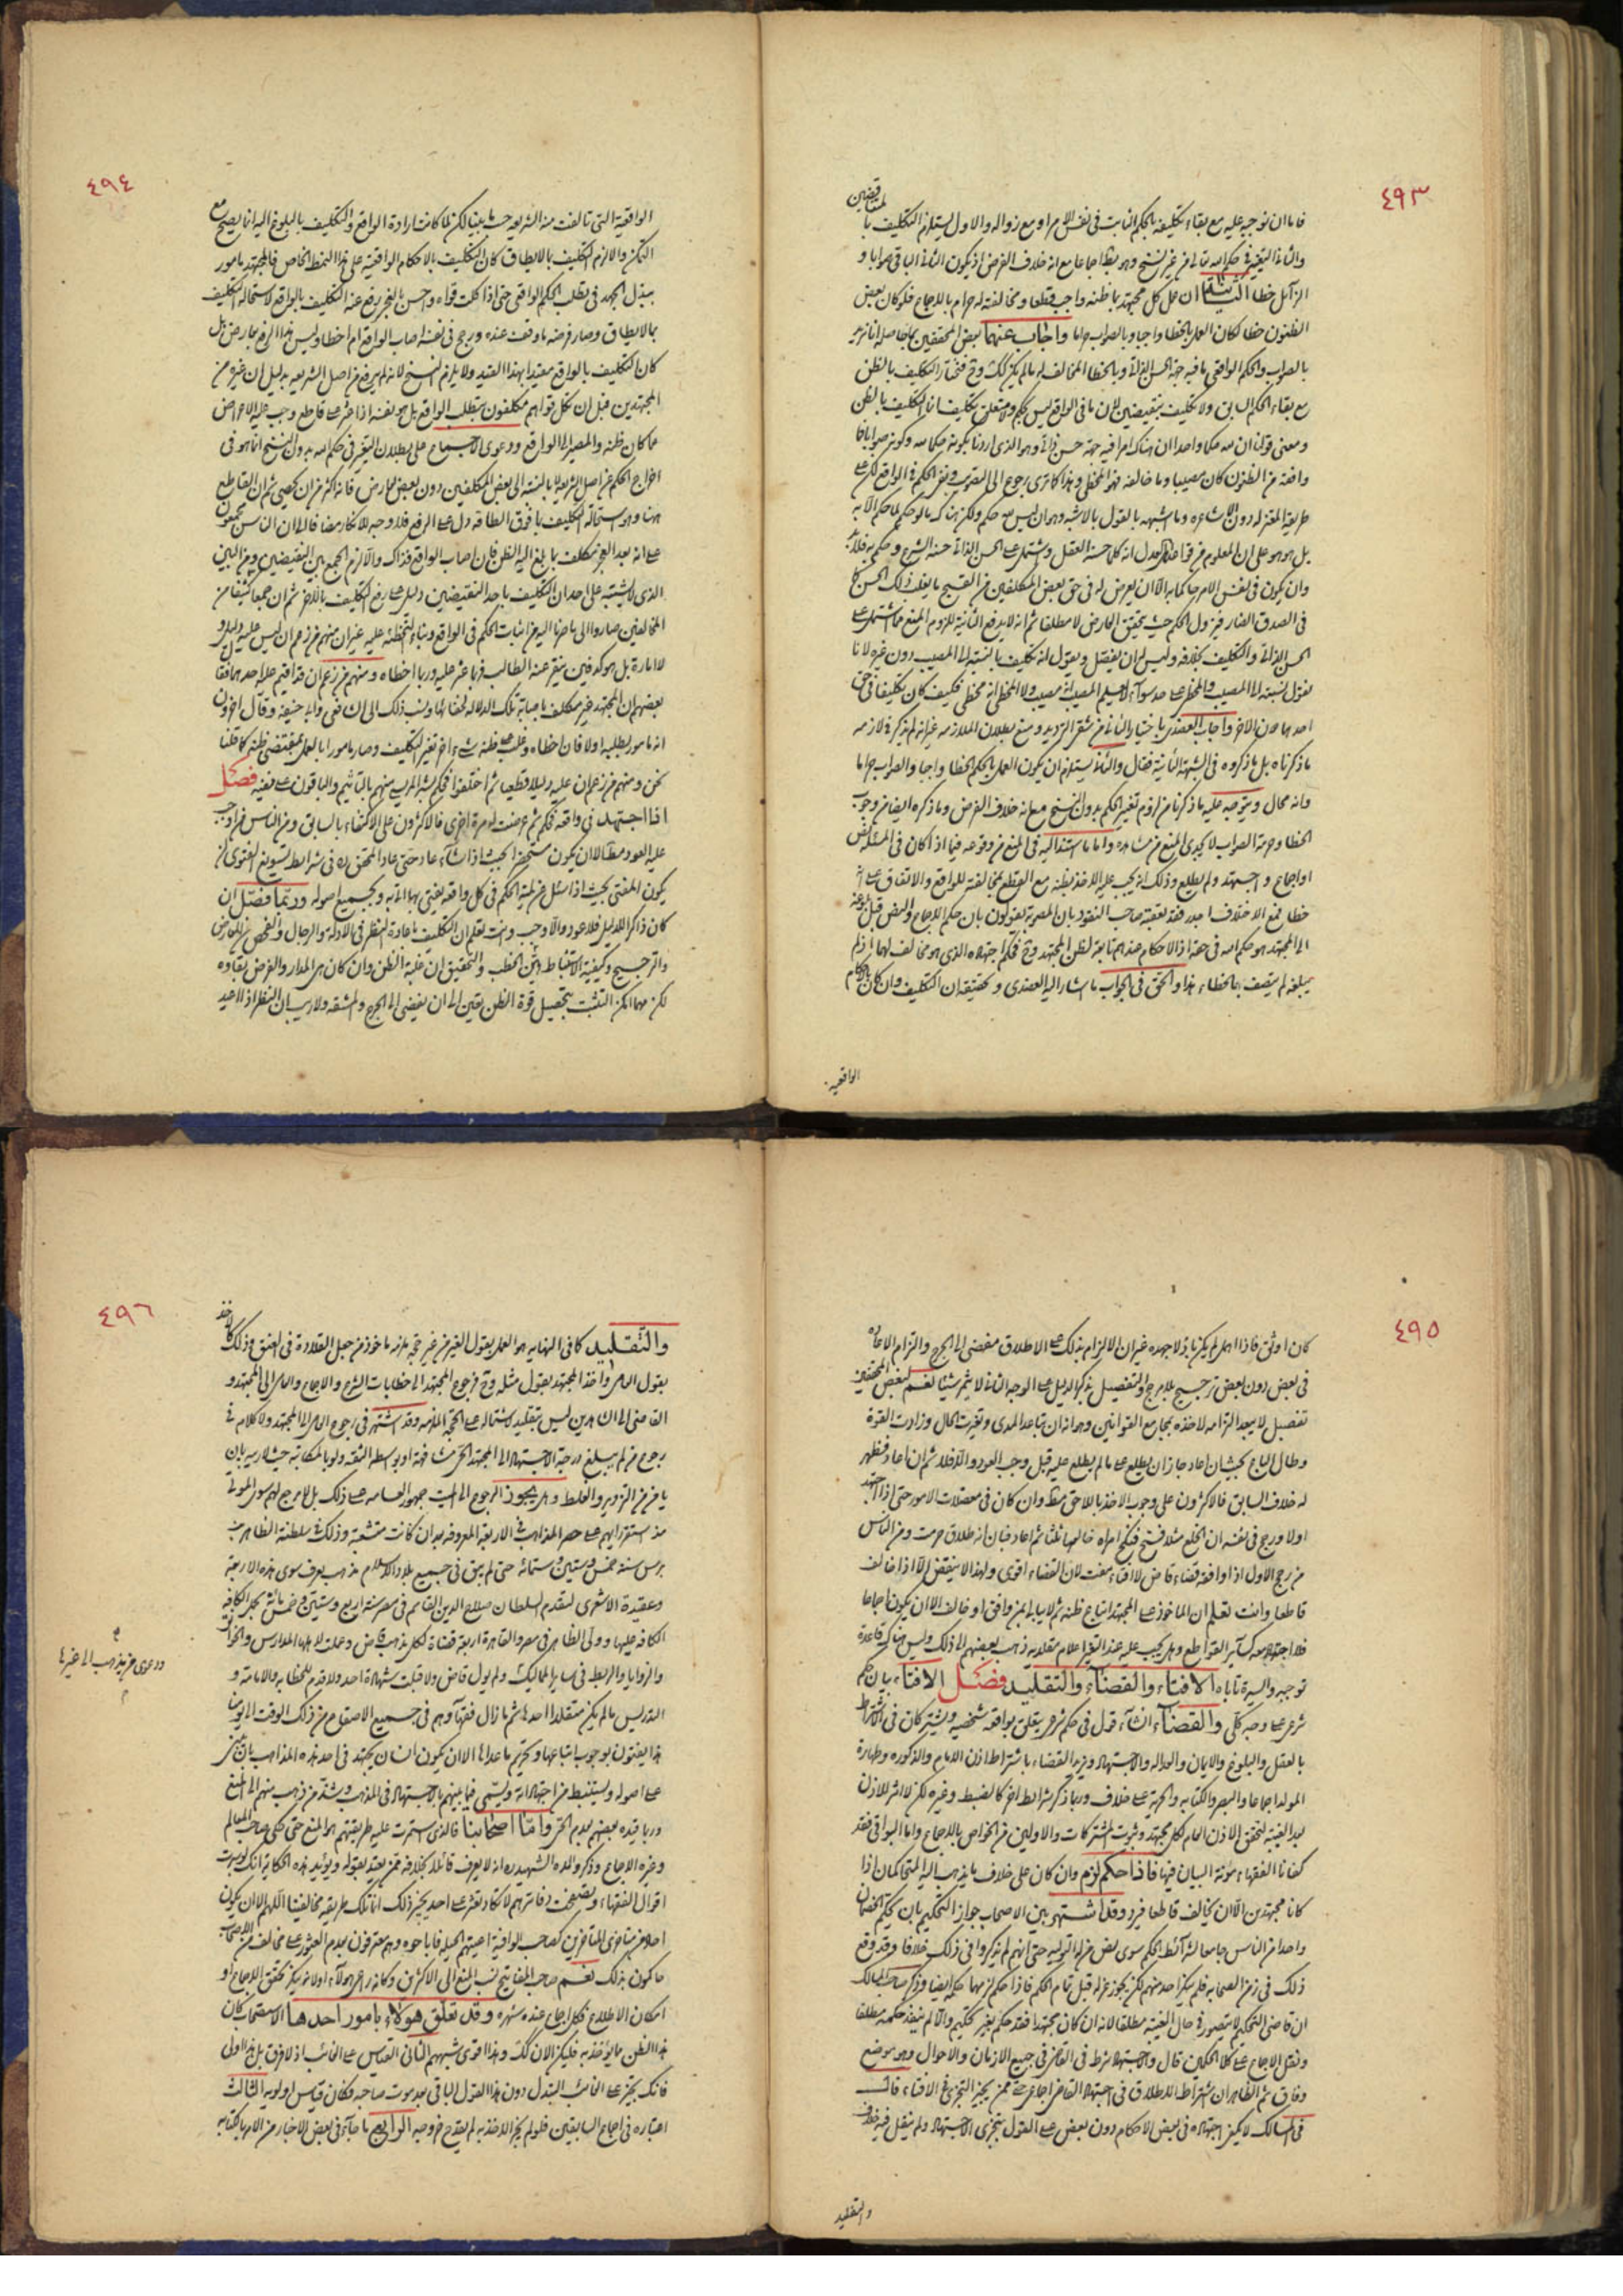 ٤٩٣
فاما ان نوجبه عليه مع بقاء تكليفه بالحكم الثابت في نفس الامر او مع زواله والاول يستلزم التكليف با
لمتناقضين
والثاني التغير في حكم الله تعالى من غير نسخ وهو بط اجماعا مع انه خلاف الفرض اذ يكون الثاني الباقي صوابا و
الزائل خطأ الثالث ان عمل كل مجتهد بما ظنه واجب قطعا ومخالفته له حرام بالاجماع فلو كان بعض
الظنون خطأ لكان العمل بالخطا واجبا وبالصواب حراما واجاب عنهما بعض المحققين بما حاصله انا نريد
بالصواب والحكم الواقعي ما فيه جهة الحسن الذاتي وبالخطا المخالف له ما لم يكن كك وح فنختار التكليف بالظن
مع بقاء الحكم السابق ولا تكليف بنقيضين لان ما في الواقع ليس بحكم ولا متعلق تكليف انما التكليف بالظن
ومعنى قولنا ان لله حكما واحدا ان هناك امرا فيه جهة حسن ذاتي وهو الذي اردنا بكونه حكما لله وكونه صوابا فما
وافقه من الظنون كان مصيبا وما خالفه فهو المخطي وهذا كما ترى رجوع الى التصويب ونفي الحكم في الواقع لكن على
طريقة المعتزله دون الاشاعره وما اشبهه بالقول بالاشبه وهو ان ليس لله حكم ولكن هناك ما لو حكم لما حكم الا به
بل هو هو على ان المعلوم من قواعد العدل انه كلما حسنه العقل ويشتمل على الحسن الذاتي حسنه الشرع و حكم به فلابد
وان يكون في نفس الامر حاكما به الا ان يعرض له في حق بعض المكلفين من القبيح ما يغلب ذلك الحسن كما
في الصدق الضار فيزول الحكم حيث يتحقق العارض لا مطلقا ثم انه لا يدفع الثانية للزوم المنع مما اشتمل على
الحسن الذاتي والتكليف بخلافه وليس له ان يفصل ويقول انه تكليف بالنسبة الى المصيب دون غيره لانا
نقول نسبته الى المصيب والمخطي على حد سواء لا يعلم المصيب انه مصيب ولا المخطي انه مخطي فكيف كان تكليفا في حق
احدهما دون الاخر واجاب العضدي باختيار الثاني من شقي الترديد ومنع بطلان الملازمه غير انه لم يذكر في لازمه
ما ذكرناه بل ما ذكروه في الشبهة الثانية فقال والثاني يستلزم ان يكون العمل بالحكم الخطا واجبا والصواب حراما
وانه محال ويتوجه عليه ما ذكرنا من لزوم تغير الحكم بدون النسخ مع انه خلاف الفرض وما ذكره ايضا من وجوب
الخطا وحرمة الصواب لا يجدي المنع من مثله واما ما استند اليه في المنع من وقوعه فيما اذا كان في المسئله نص
او اجماع و اجتهد ولم يطلع وذلك انه يجب عليه الاخذ بظنه مع القطع بمخالفته للواقع والاتفاق على انه
خطأ فمع الاختلاف اجدر فقد تعقبه صاحب النقود بان المصوبة يقولون بان حكم الاجماع والنص قبل بلوغه
الى المجتهد هو حكم الله في حقه اذ الاحكام عندهم تابعة لظن المجتهد وح فحكم اجتهاده الذي هو مخالف لهما اذا لم
يبلغه لم يتصف بالخطاء هذا والحق في الجواب ما اشار اليه العضدي و تحقيقه ان التكليف وان كان بالاحكام
الواقعيه
٤٩٤
الواقعية التي تالفت منه الشريعه حسب ما بينا لكن لما كانت ارادة الواقع والتكليف بالبلوغ اليه انما يصح مع
التمكن والا لزم التكليف بما لا يطاق كان التكليف بالاحكام الواقعيه على هذا النمط الخاص فالمجتهد مامور
ببذل الجهد في تطلب الحكم الواقعي حتى اذا كلت قواه و احس بالعجز رفع عنه التكليف بالواقع لاستحالة التكليف
بما لا يطاق وصار فرضه ما وقعت عنده ورجح في نفسه اصاب الواقع ام اخطا وليس هذا الرفع بعارض بل
كان التكليف بالواقع مقيدا بهذا القيد ولا يلزم النسخ لانه لم يرفع من اصل الشريعه بدليل ان غيره من
المجتهدين قبل ان تكل قواهم مكلفون بتطلب الواقع بل هو نفسه اذا عثر على قاطع وجب عليه الاعراض
عما كان ظنه والمصير الى الواقع ودعوى الاجماع على بطلان التغير في حكم الله بدون النسخ انما هو في
اخراج الحكم من اصل الشريعة لا بالنسبة الى بعض المكلفين دون بعض لعارض فانه اكثر من ان يحصى ثم ان القاطع
هنا وهو استحالة التكليف بما فوق الطاقة دل على الرفع فلا وجه للانكار مضافا الى ان الناس مجمعون
على انه بعد العجز مكلف بما بلغ اليه الظن فان اصاب الواقع فذاك والا لزم الجمع بين النقيضين ومن البين
الذي لا يشتبه على احد ان التكليف باحد النقيضين دليل على رفع التكليف بالاخر ثم ان جمعا كثيفا من
المخالفين صاروا الى ما صرنا اليه من اثبات الحكم في الواقع وبناء التخطئه عليه غير ان منهم من زعم ان ليس عليه دليل و
لا امارة بل هو كدفين يتقر عنه الطالب فربما عثر عليه وربما اخطاه و منهم من زعم ان قد اقيم عليه احدهما فقال
بعضهم ان المجتهد غير مكلف باصابة تلك الدلاله لخفائها ونسب ذلك الى الشافعي وابي حنيفه وقال اخرون
انه مامور بطلبه اولا فان اخطاه وغلب على ظنه شيء اخر تغير التكليف وصار مامورا بالعمل بمقتضى ظنه كما قلنا
نحن ومنهم من زعم ان عليه دليلا قطعيا ثم اختلفوا فحكم بشر المريسي منهم بالتاثيم والباقون على نفيه فصل
اذا اجتهد في واقعه فحكم ثم عرضت له مرة اخرى فالاكثرون على الاكتفاء بالسابق ومن الناس من اوجب
عليه العود مطلقا الا ان يكون مستحضرا بحيث اذا شاء عاد حتى عاد المحقق ره في شرايط تسويغ الفتوى ان
يكون المفتي بحيث اذا سئل عن لمية الحكم في كل واقعه يفتي بها اتى به وبجميع اصوله وربما فصل ان
كان ذاكرا للدليل فلا عود والا وجب وانت تعلم ان التكليف باعادة النظر في الادلة والرجال والفحص عن المعارض
والترجيح وكيفية الاستنباط اهون الخطب والتحقيق ان غلبة الظن وان كان هي المدار والفرض بقاوه
لكن مهما امكن التثبت بتحصيل قوة الظن تعين الى ان يفضي الى الحرج والمشقه ولا ريب ان النظر اذا اعيد
٤٩٥
كان اوثق فاذا اهمل لم يكن باذلا جهده غير ان الالزام بذلك على الاطلاق مفضي الى الحرج والتزام الاعاده
في بعض دون بعض ترجيح بلا مرجح والتفصيل بذكر الدليل على الوجه الثاني لا يثمر شيئا نعم لبعض المحققين
تفصيل لا يبعد التزامه لاخذه بمجامع القوانين وهو انه ان تباعد المدى وتغيرت الحال وزادت القوة
وطال الباع بحيث ان اعاد جاز ان يطلع على ما لم يطلع عليه قبل وجب العود والا فلا ثم ان اعاد فظهر
له خلاف السابق فالاكثرون على وجوب الاخذ باللاحق مط وان كان في معضلات الامور حتى اذا اجتهد
اولا ورجح في نفسه ان الخلع مثلا فسخ فنكح امراه خالعها ثلثا ثم اعاد فبان انه طلاق حرمت ومن الناس
من رجح الاول اذا وافقه قضاء قاض لا افتاء مفت لان القضاء اقوى ولهذا لا ينقض الا اذا خالف
قاطعا وانت تعلم ان الماخوذ على المجتهد اتباع ظنه ثم لا يبالي بمن وافق او خالف الا ان يكون اجماعا
فلا اجتهاد كسائر القواطع وهل يجب عليه عند التغير اعلام مقلديه ذهب بعضهم الى ذلك وليس هناك قاعدة
توجبه والسيرة تاباه الافتاء والقضاء والتقليد فصل الافتاء بيان حكم
شرعي على وجه كلي والقضاء انشاء قول في حكم شرعي يتعلق بواقعه شخصيه ويشتركان في الاشتراط
بالعقل والبلوغ والايمان والعداله والاجتهاد ويزيد القضاء باشتراط اذن الامام والذكوره وطهارة
المولد اجماعا والبصر والكتابه والحرية على خلاف وربما ذكر شرايط اخر كالضبط وغيره لكن لا اثر للاذن
بعد الغيبه لتحقق الاذن العام لكل مجتهد وثبوت المشتركات والاولين من الخواص بالاجماع واما البواقي فقد
كفانا الفقهاء مؤنة البيان فيها فاذا حكم لزم وان كان على خلاف ما يذهب اليه المتحاكمان اذا
كانا مجتهدين الا ان يخالف قاطعا فيرد وقد اشتهر بين الاصحاب جواز التحكيم بان يحكم الخصمان
واحدا من الناس جامعا لشرائط الحكم سوى نص من له التوليه حتى انهم لم يذكروا في ذلك خلافا وقد وقع
ذلك في زمن الصحابه فلم ينكر احد منهم لكن يجوز عزله قبل تمام الحكم فاذا حكم لزمهما حكمه ايضا وذكر صاحب المسالك
ان قاضي التحكيم لا يتصور في حال الغيبة مطلقا لانه ان كان مجتهدا فقد حكم بغير تحكيم والا لم ينفذ حكمه مطلقا
ونقل الاجماع على كلا الحكمين قال والاجتهاد شرط في القاضي في جميع الازمان والاحوال وهو موضع
وفاق ثم الظاهر ان اشتراط الاطلاق في اجتهاد القاضي اجماعي حتى ممن يجيز التجزي في الافتاء قال
في المسالك لا يكفي اجتهاده في بعض الاحكام دون بعض على القول بتجزي الاجتهاد ولم ينقل فيه خلاف
والتقليد
٤٩٦
والتقليد كما في النهايه هو العمل بقول الغير من غير حجة ملزمه ماخوذ من جعل القلادة في العنق وذلك كاخذ
بقول العامي واخذ المجتهد بقول مثله وح فرجوع المجتهد الى خطابات الشرع والاجماع والعامي الى المجتهد و
القاضي الى الشاهدين ليس بتقليد لاشتماله على الحجة الملزمه وقد اشتهر في رجوع العامي الى المجتهد ولا كلام في
رجوع من لم يبلغ درجة الاجتهاد الى المجتهد الحي مشافهة او بواسطه الثقه ولو بالمكاتبه حيث لا ريبه بان
يامن من التزوير والغلط وهل يجوز الرجوع الى الميت جمهور العامه على ذلك بل لا مرجع لهم سوى الموتى
منذ استقر رايهم على حصر المذاهب في الاربعة المعروفه بعد ان كانت متشعبة وذلك في سلطنة الظاهر بيـ
برس سنة خمس وستين وستمائه حتى لم يبق في جميع بلاد الاسلام مذهب يعرف سوى هذه الاربعة
وعقيدة الاشعري لتقدم السلطان صلاح الدين القائم في مصر سنة اربع وستين وخمس مائة بحمل الكافه
الكافه عليها وولى الظاهر في مصر والقاهرة اربعة قضاة لكل مذهب قاض وعملت لاهلها المدارس والخوانك
والزوايا والربط في ساير الممالك ولم يول قاض ولا قبلت شهادة احد ولا قدم للخطابه والامامة و
التدريس ما لم يكن مقلدا لاحدها ثم ما زال فقهاؤهم في جميع الاصقاع من ذلك الوقت الى يومنا
هذا يفتون بوجوب اتباعها وتحريم ما عداها الا ان يكون انسان يجتهد في احد هذه المذاهب بان يمشي
على اصوله ويستنبط من اجتهاداته ويسمى فيما بينهم بالاجتهاد في المذهب وشذ من ذهب منهم الى المنع
وربما قيده بعضهم بعدم الحي واما اصحابنا فالذي استمرت عليه طريقتهم هو المنع حتى حكى صاحب المعالم
وغيره الاجماع وذكر والده الشهيد ره انه لا يعرف قائلا بخلافه ممن يعتد بقوله ويؤيد هذه الحكاية انك لو سبرت
اقوال الفقهاء وتصفحت دفاترهم لا تكاد تعثر على احد يجيز ذلك انما تلك طريقه مخالفينا اللهم الا ان يكون
احد من متاخري المتاخرين كصاحب الوافية اعيتهم الحيله فاباحوه وهم معترفون بعدم العثور على مخالف من الاصحاب
حاكون بذلك نعم صاحب المفاتيح نسب المنع الى الاكثرين وكانه راعى هؤلاء اولا ممن ينكر تحقق الاجماع او
امكان الاطلاع فكل اجماع عنده شهره وقد تعلق هؤلاء بامور احدها الاستصحاب كان
هذا الظن مما يؤخذ به فليكن الان كك وهذا اقوى شبههم الثاني القياس على الغائب اذ لا فرق بل هذا اولى
فانك تجيز على الغائب التبدل دون هذا القول الباقي بعد موت صاحبه فكان قياس اولويه الثالث
اعتباره في اجماع السابقين فلو لم يجز الاخذ به لم يقدح خروجه الرابع ما جاء في بعض الاخبار من الامر بكتابه
ودعوى من يذهب الى غيرها